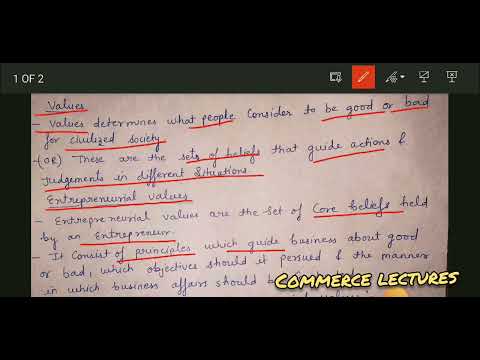 1 OF 2
Values
- Values determines what people consider to be good or bad
for civilized society
-(OR) These are the sets of beliefs that guide actions &
Judgements in different situations
Entrepreneurial values
- Entrepreneurial values are the set of core beliefs held
by an Entrepreneur.
- It consist of principles which guide business about good
or bad, which objectives should it persued & the manner
in which business affairs should
COMMERCE LECTURES